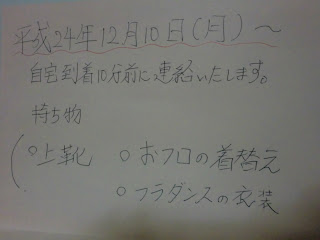 平成24年12月10日(月)～
自宅到着10分前に連絡いたします。
持ち物
○上靴 ○おフロの着替え
○フラダンスの衣装